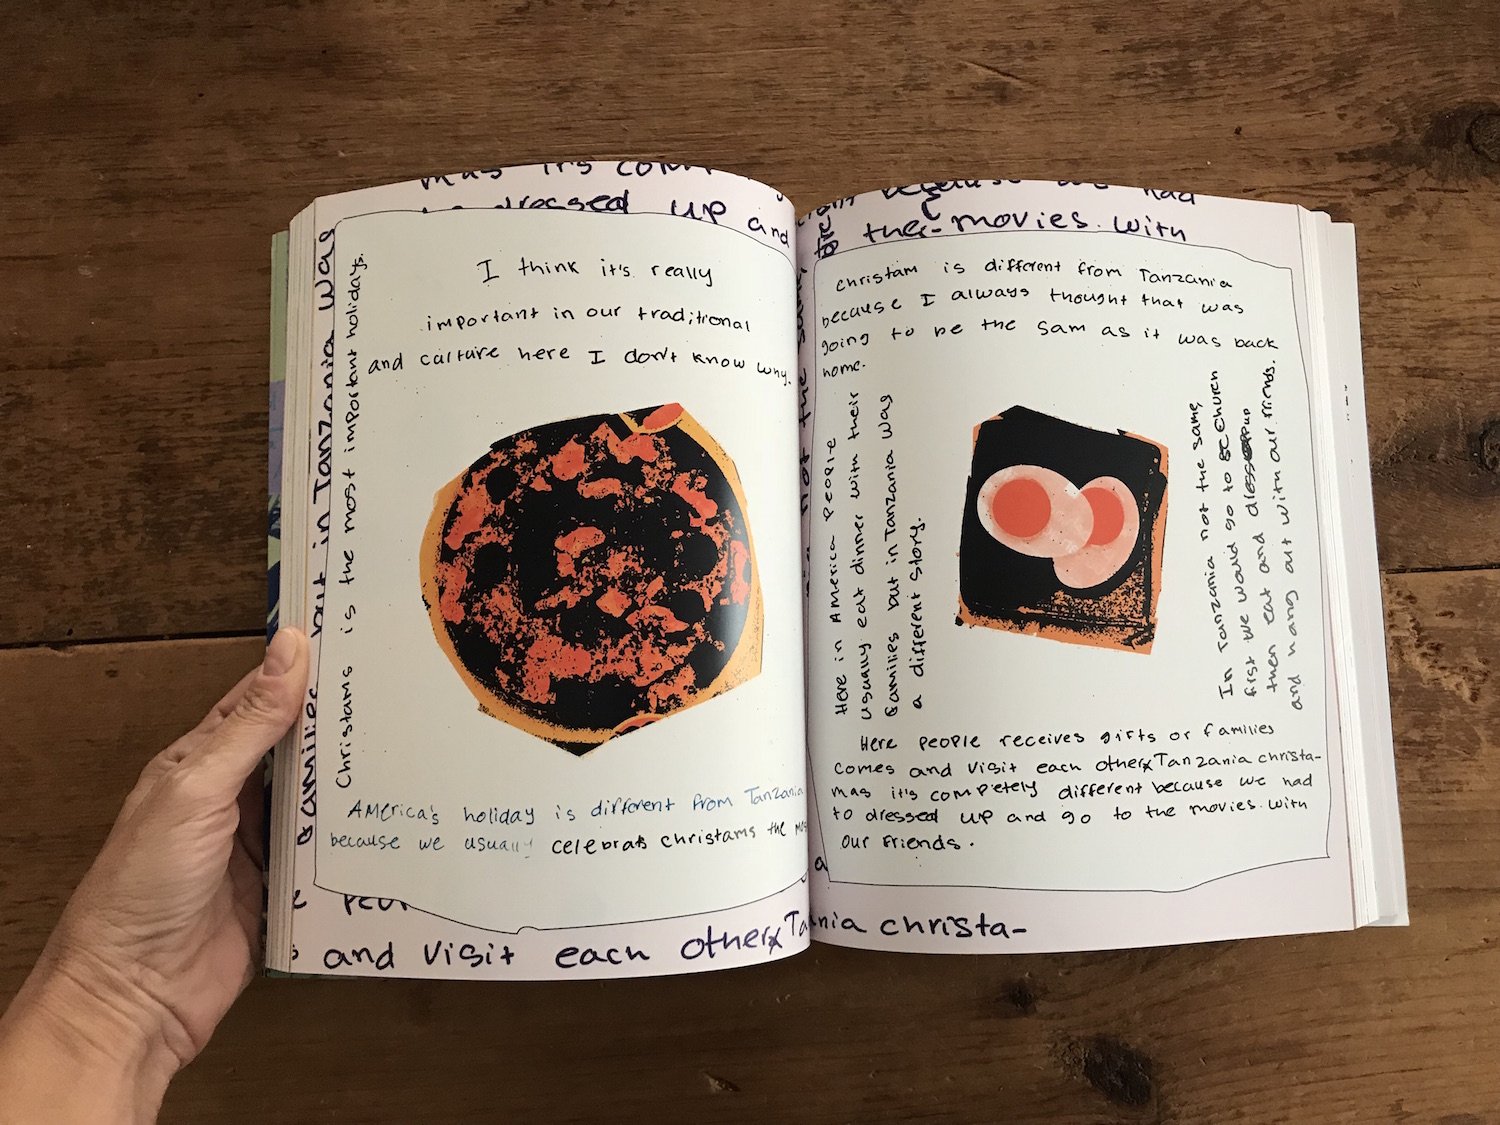 mas it's com
dressed up and
families but in Tanzania was
I think it's really
important in our traditional
and culture here I don't know why.
Christams is the most important holidays.
America's holiday is different from Tanzania
because we usually celebrats christams the
and visit each otherx Ta
because we had
the movies. With
not the same,
christam is different from Tanzania
because I always thought that was
going to be the sam as it was back
home.
Here in America people
usually eat dinner with their
families but in Tanzania was
a different story.
In Tanzania not the same,
first we would go to church
then eat and dress up
and hang out with our friends.
Here people receives gifts or families
comes and visit each otherx Tanzania christa-
mas it's completely different because we had
to dressed up and go to the movies. With
our friends.
nia christa-